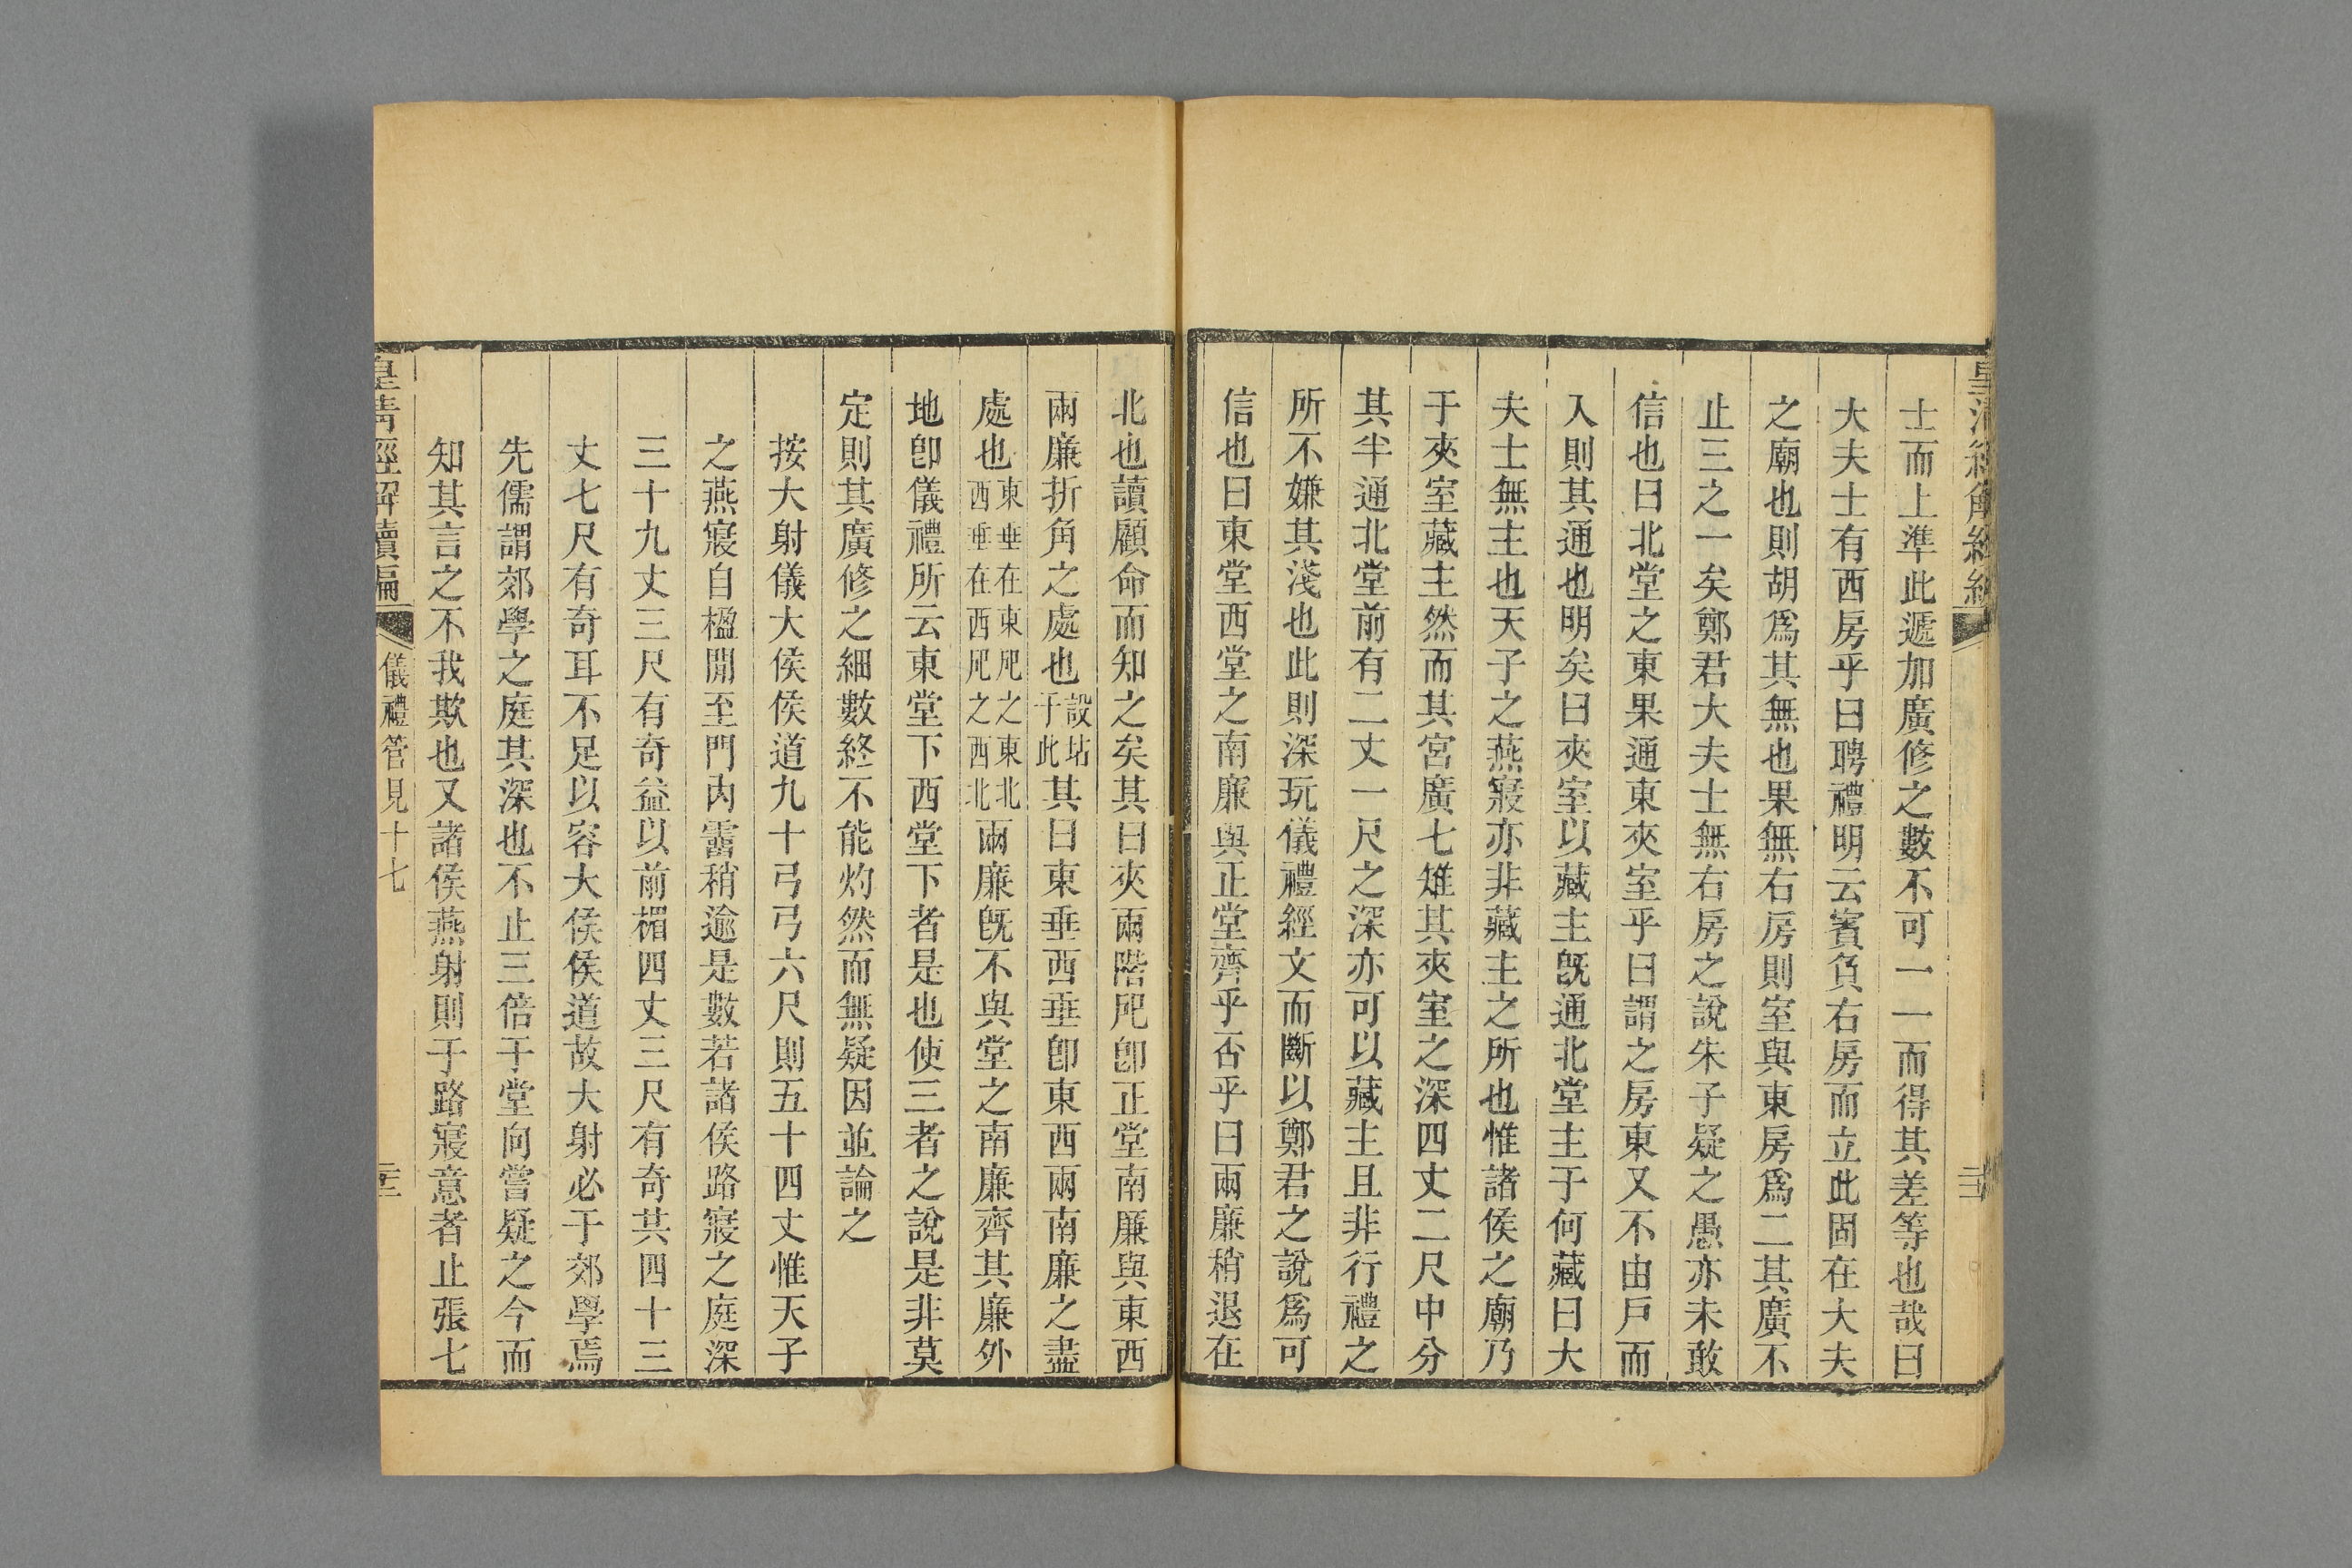 士而上準此遞加廣修之數不可一一而得其差等也哉曰
大夫士有西房乎曰聘禮明云賓負右房而立此固在大夫
之廟也則胡爲其無也果無右房則室與東房爲二其廣不
止三之一矣鄭君大夫士無右房之說朱子疑之愚亦未敢
信也曰北堂之東果通東夾室乎曰謂之房東又不由戸而
入則其通也明矣曰夾室以藏主旣通北堂主于何藏曰大
夫士無主也天子之燕寢亦非藏主之所也惟諸侯之廟乃
于夾室藏主然而其宮廣七雉其夾室之深四丈二尺中分
其半通北堂前有二丈一尺之深亦可以藏主且非行禮之
所不嫌其淺也此則深玩儀禮經文而斷以鄭君之說爲可
信也曰東堂西堂之南廉與正堂齊乎否乎曰兩廉稍退在
北也讀顧命而知之矣其曰夾兩階戺卽正堂南廉與東西
兩廉折角之處也設坫于此其曰東垂西垂卽東西兩南廉之盡
處也東垂在東戺之東北西垂在西戺之西北兩廉旣不與堂之南廉齊其廉外
地卽儀禮所云東堂下西堂下者是也使三者之說是非莫
定則其廣修之細數終不能灼然而無疑因並論之
按大射儀大侯侯道九十弓弓六尺則五十四丈惟天子
之燕寢自楹閒至門內霤稍逾是數若諸侯路寢之庭深
三十九丈三尺有奇益以前楣四丈三尺有奇共四十三
丈七尺有奇耳不足以容大侯侯道故大射必于郊學焉
先儒謂郊學之庭其深也不止三倍于堂向嘗疑之今而
知其言之不我欺也又諸侯燕射則于路寢意者止張七
皇清經解續編
儀禮管見十七